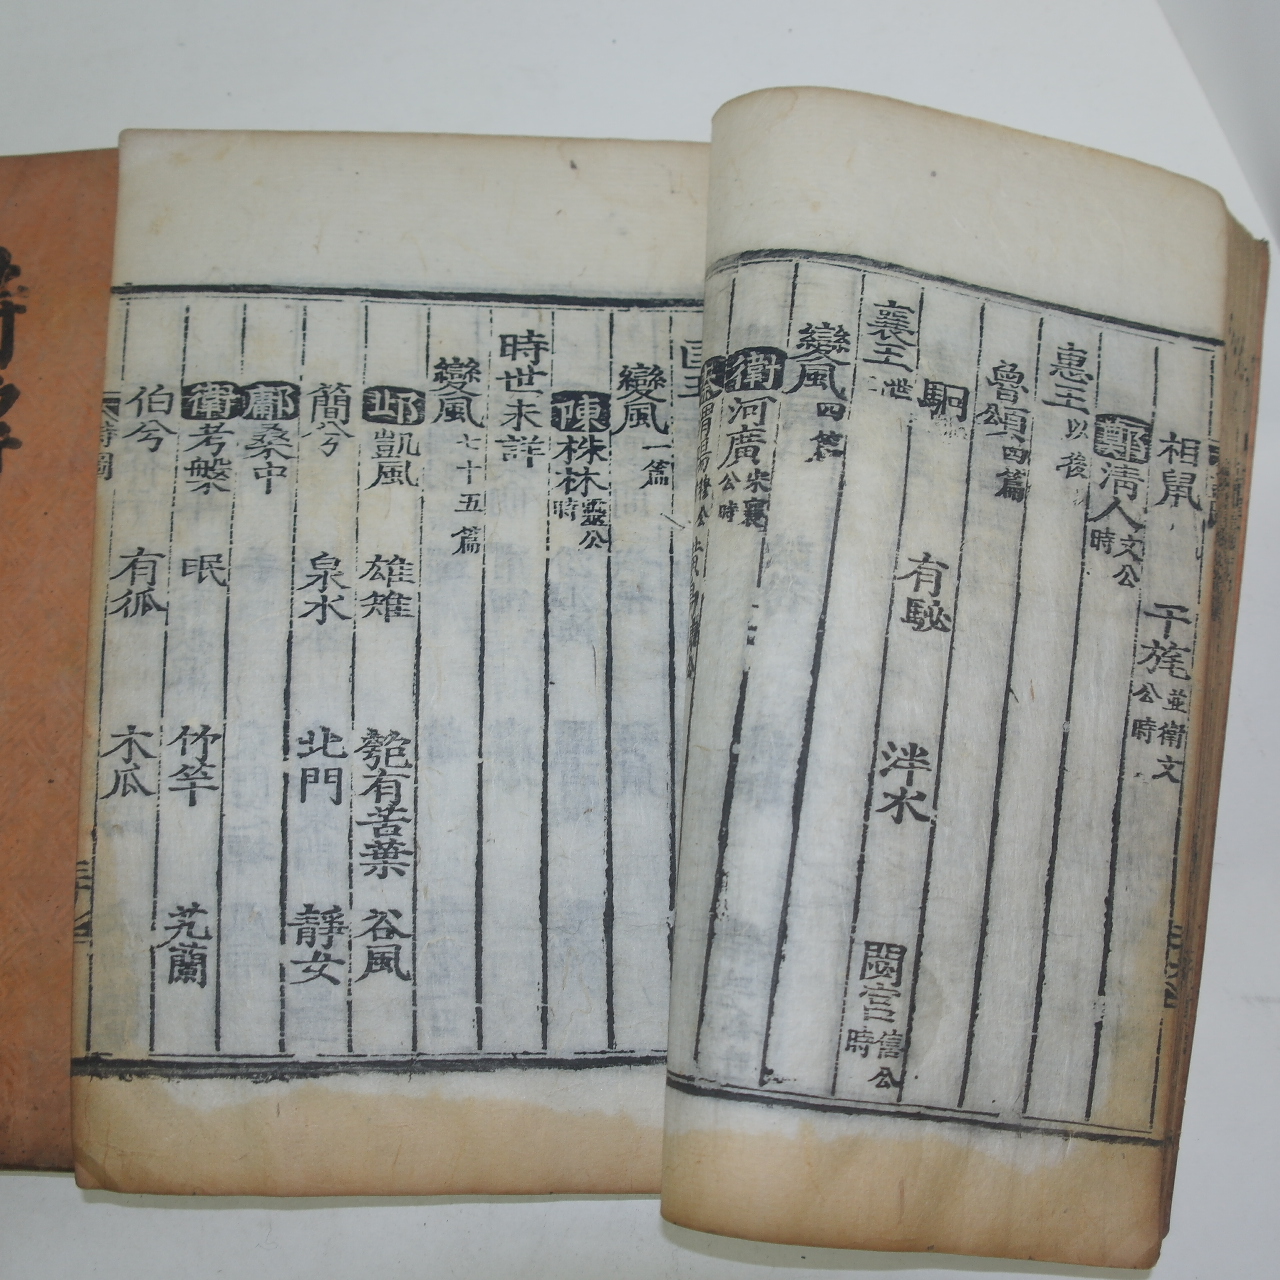 相鼠 干旄 並衛文公時
鄭 清人 文公時
惠王以後
魯頌 四篇
駉 有駜 泮水 閟宮 僖公時
襄王世
變風 四篇
衛 河廣 宋襄公時
變風 一篇
陳 株林 靈公時
時世未詳
變風 七十五篇
邶 凱風 雄雉 匏有苦葉 谷風
簡兮 泉水 北門 靜女
鄘 桑中
衛 考槃 氓 竹竿 芄蘭
伯兮 有狐 木瓜